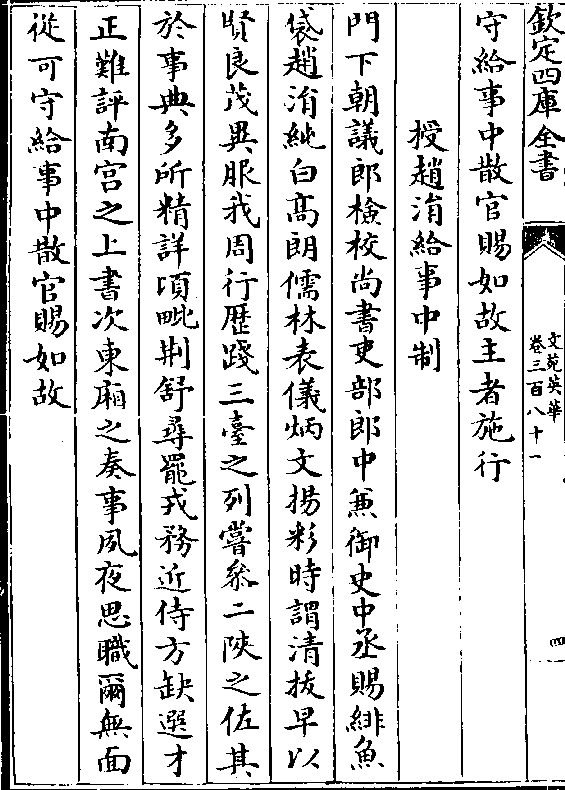 欽定四庫全書
文苑英華
卷三百八十一
四
守給事中散官賜如故主者施行
授趙涓給事中制
門下朝議郎檢校尚書吏部郎中兼御史中丞賜緋魚
袋趙涓純白高朗儒林表儀炳文揚彩時謂清拔早以
賢良茂異服我周行歴踐三臺之列嘗叅二陝之佐其
於事典多所精詳頃毗荆舒尋罷戎務近侍方缺選才
正難評南宮之上書次東廂之奏事夙夜思職爾無面
從可守給事中散官賜如故